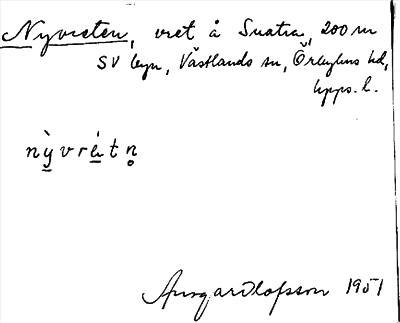 Nyvreten, vret å Suatra, 200 m
SV byn, Västlands sn, Örbyhus hd,
Upps. l.
nỳ̠vrè̠tn̥
Ansgar Olofsson 1951